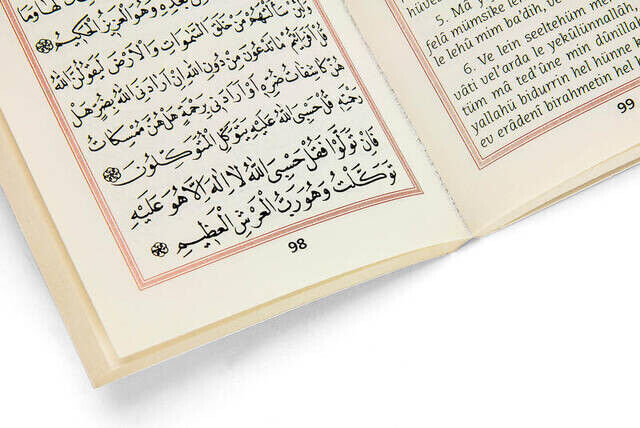 لَهَا وَمَا
بَعْدِهِ وَهُوَ الْعَزِيزُ الْحَكِيمُ
سَأَلْتَهُمْ مَنْ خَلَقَ السَّمٰوَاتِ وَالْأَرْضَ لَيَقُولُنَّ اللهُ
قُلْ أَفَرَأَيْتُمْ مَا تَدْعُونَ مِنْ دُونِ اللهِ إِنْ أَرَادَنِيَ اللهُ بِضُرٍّ هَلْ
هُنَّ كَاشِفَاتُ ضُرِّهِ أَوْ أَرَادَنِي بِرَحْمَةٍ هَلْ هُنَّ مُمْسِكَاتُ
رَحْمَتِهِ قُلْ حَسْبِيَ اللهُ عَلَيْهِ يَتَوَكَّلُ الْمُتَوَكِّلُونَ
فَإِنْ تَوَلَّوْا فَقُلْ حَسْبِيَ اللهُ لَا إِلٰهَ إِلَّا هُوَ عَلَيْهِ
تَوَكَّلْتُ وَهُوَ رَبُّ الْعَرْشِ الْعَظِيمِ
98
hüve
5. Mâ y
felâ mümsike le
le lehü mim ba'dih, ve
6. Ve lein seeltehüm me
vâti vel'arda le yekûlünnallâh,
tüm mâ ted'ûne min dûnilla
yallahü bidurrin hel hünne
ev erâdenî birahmetin hel h
99